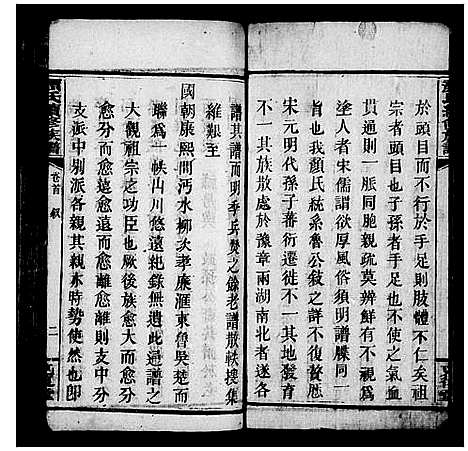 於頭目而不行於手足則肢體不仁矣祖
宗者頭目也子孫者手足也不使之氣血
貫通則一脈同胞親疏莫辨鮮有不視爲
塗人者宋儒謂欲厚風俗須明譜牒同一
我顏氏統系魯公敍之詳不復贅愆
宋元明代孫子蕃衍遷徙不一其
不一其族散處於豫章兩湖南北者遂各
譜其譜而明季兵燹之餘老譜散軼搜集
維艱至
國朝康熙間沔水柳次孝廉滙東魯吳楚而
聯爲一帙山川悠遠紀錄無遺此通譜之
大觀祖宗之功臣也厥後族愈大而支愈分
愈分而愈遠愈遠而愈離愈離則支中分
支派中別派各親其親亦時勢使然也即
卷首 敍
二